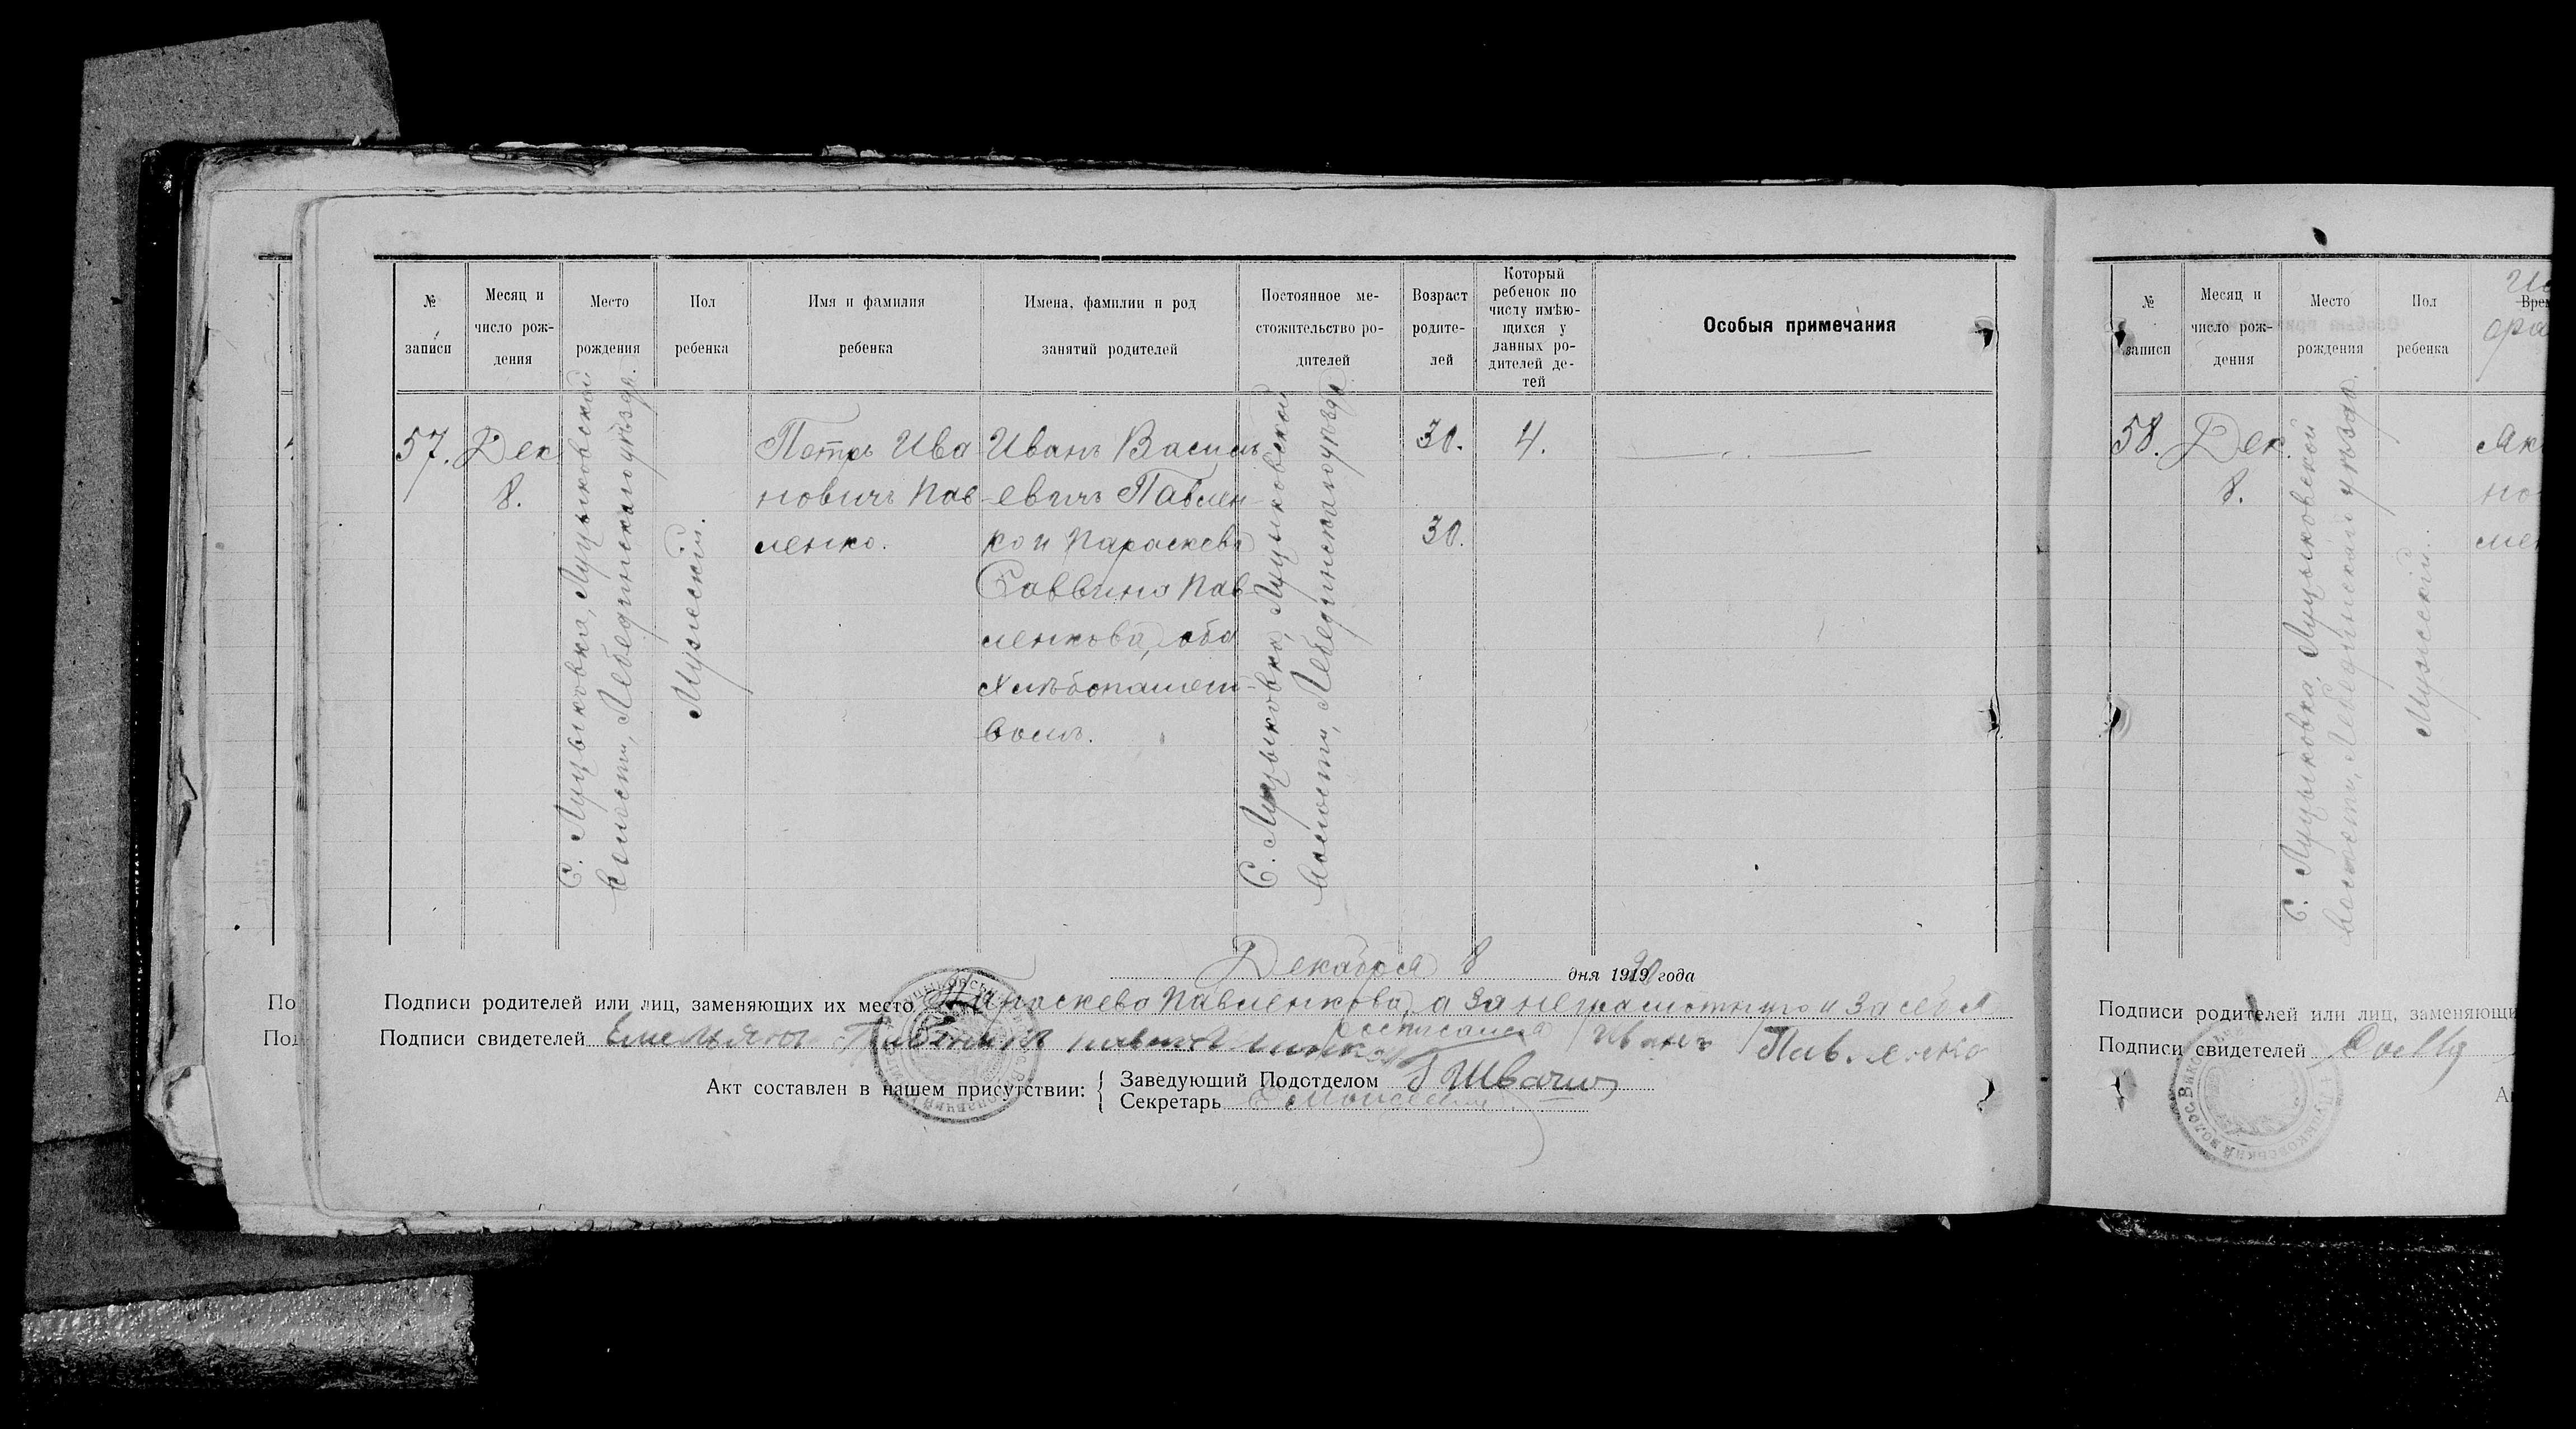 № записи
Месяц и число рождения
Место рождения
Пол ребенка
Имя и фамилия ребенка
Имена, фамилии и род занятий родителей
Постоянное местожительство родителей
Возраст родителей
Который ребенок по числу имѣющихся у данных родителей детей
Особыя примечания
57.
Дек
8.
С. Луцыковка, Луцыковской
волости, Лебединскаго уѣзда.
Мужеский.
Петръ Ива
новичъ Пав-
ленко.
Иванъ Василь
евичъ Павлен-
ко и Параскева
Саввина Пав-
ленкова, оба
хлѣбопашест-
вомъ.
С. Луцыковка, Луцыковской
волости, Лебединскаго уѣзда
30.
30.
4.
Декабря 8 дня 1920 года
Подписи родителей или лиц, заменяющих их место Параскева Павленкова, а за неграмотную и за себя
росписался Иванъ Павленко
Подписи свидетелей Емельянъ
Акт составлен в нашем присутствии:
Заведующий Подотделом Швачко
Секретарь
№ записи
Месяц и число рождения
Место рождения
Пол ребенка
58.
Дек.
8.
С. Луцыковка, Луцыковской
волости, Лебединскаго уѣзда.
Мужеский.
Подписи родителей или лиц, заменяющи
Подписи свидетелей